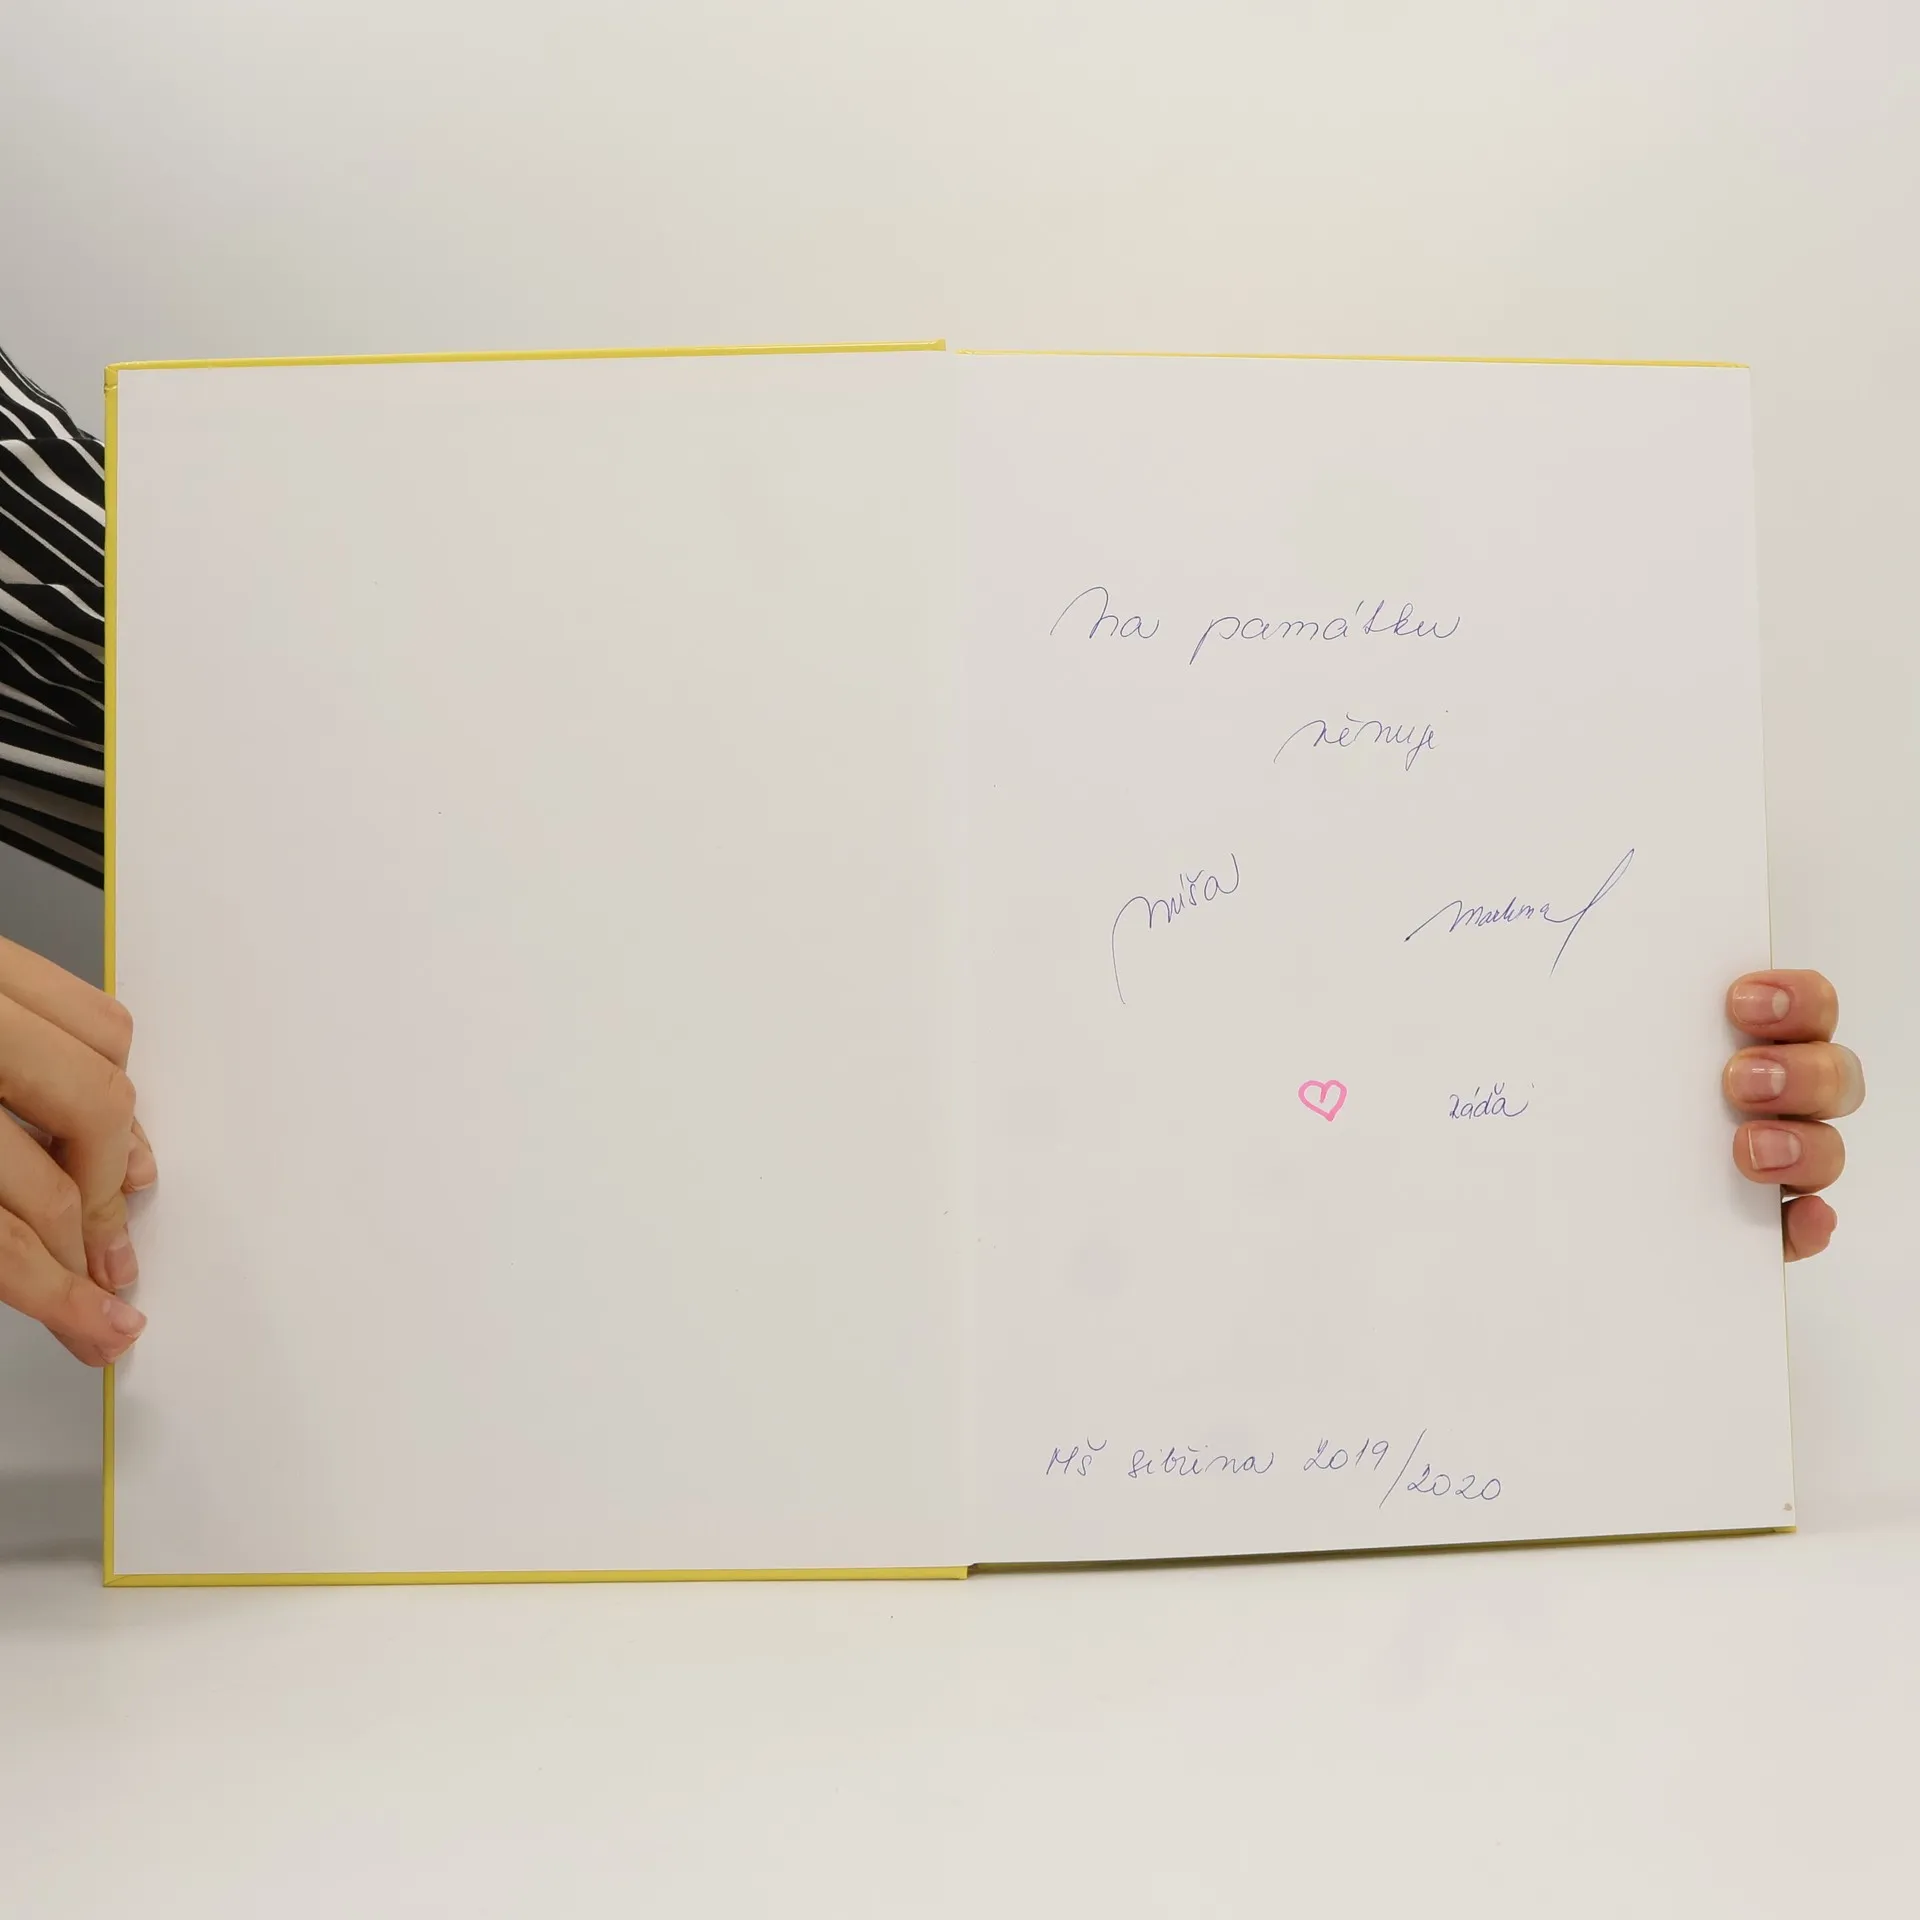 Na památku
věnují
Míša Martina
Ráďa
MŠ Sibřina 2019/2020